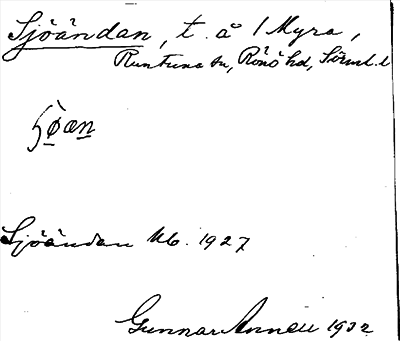 Sjöändan, t. å 1 Myra,
Runtuna sn, Rönö hd, Sörml. l

Sjöändan kb. 1927
Gunnar Annell 1932